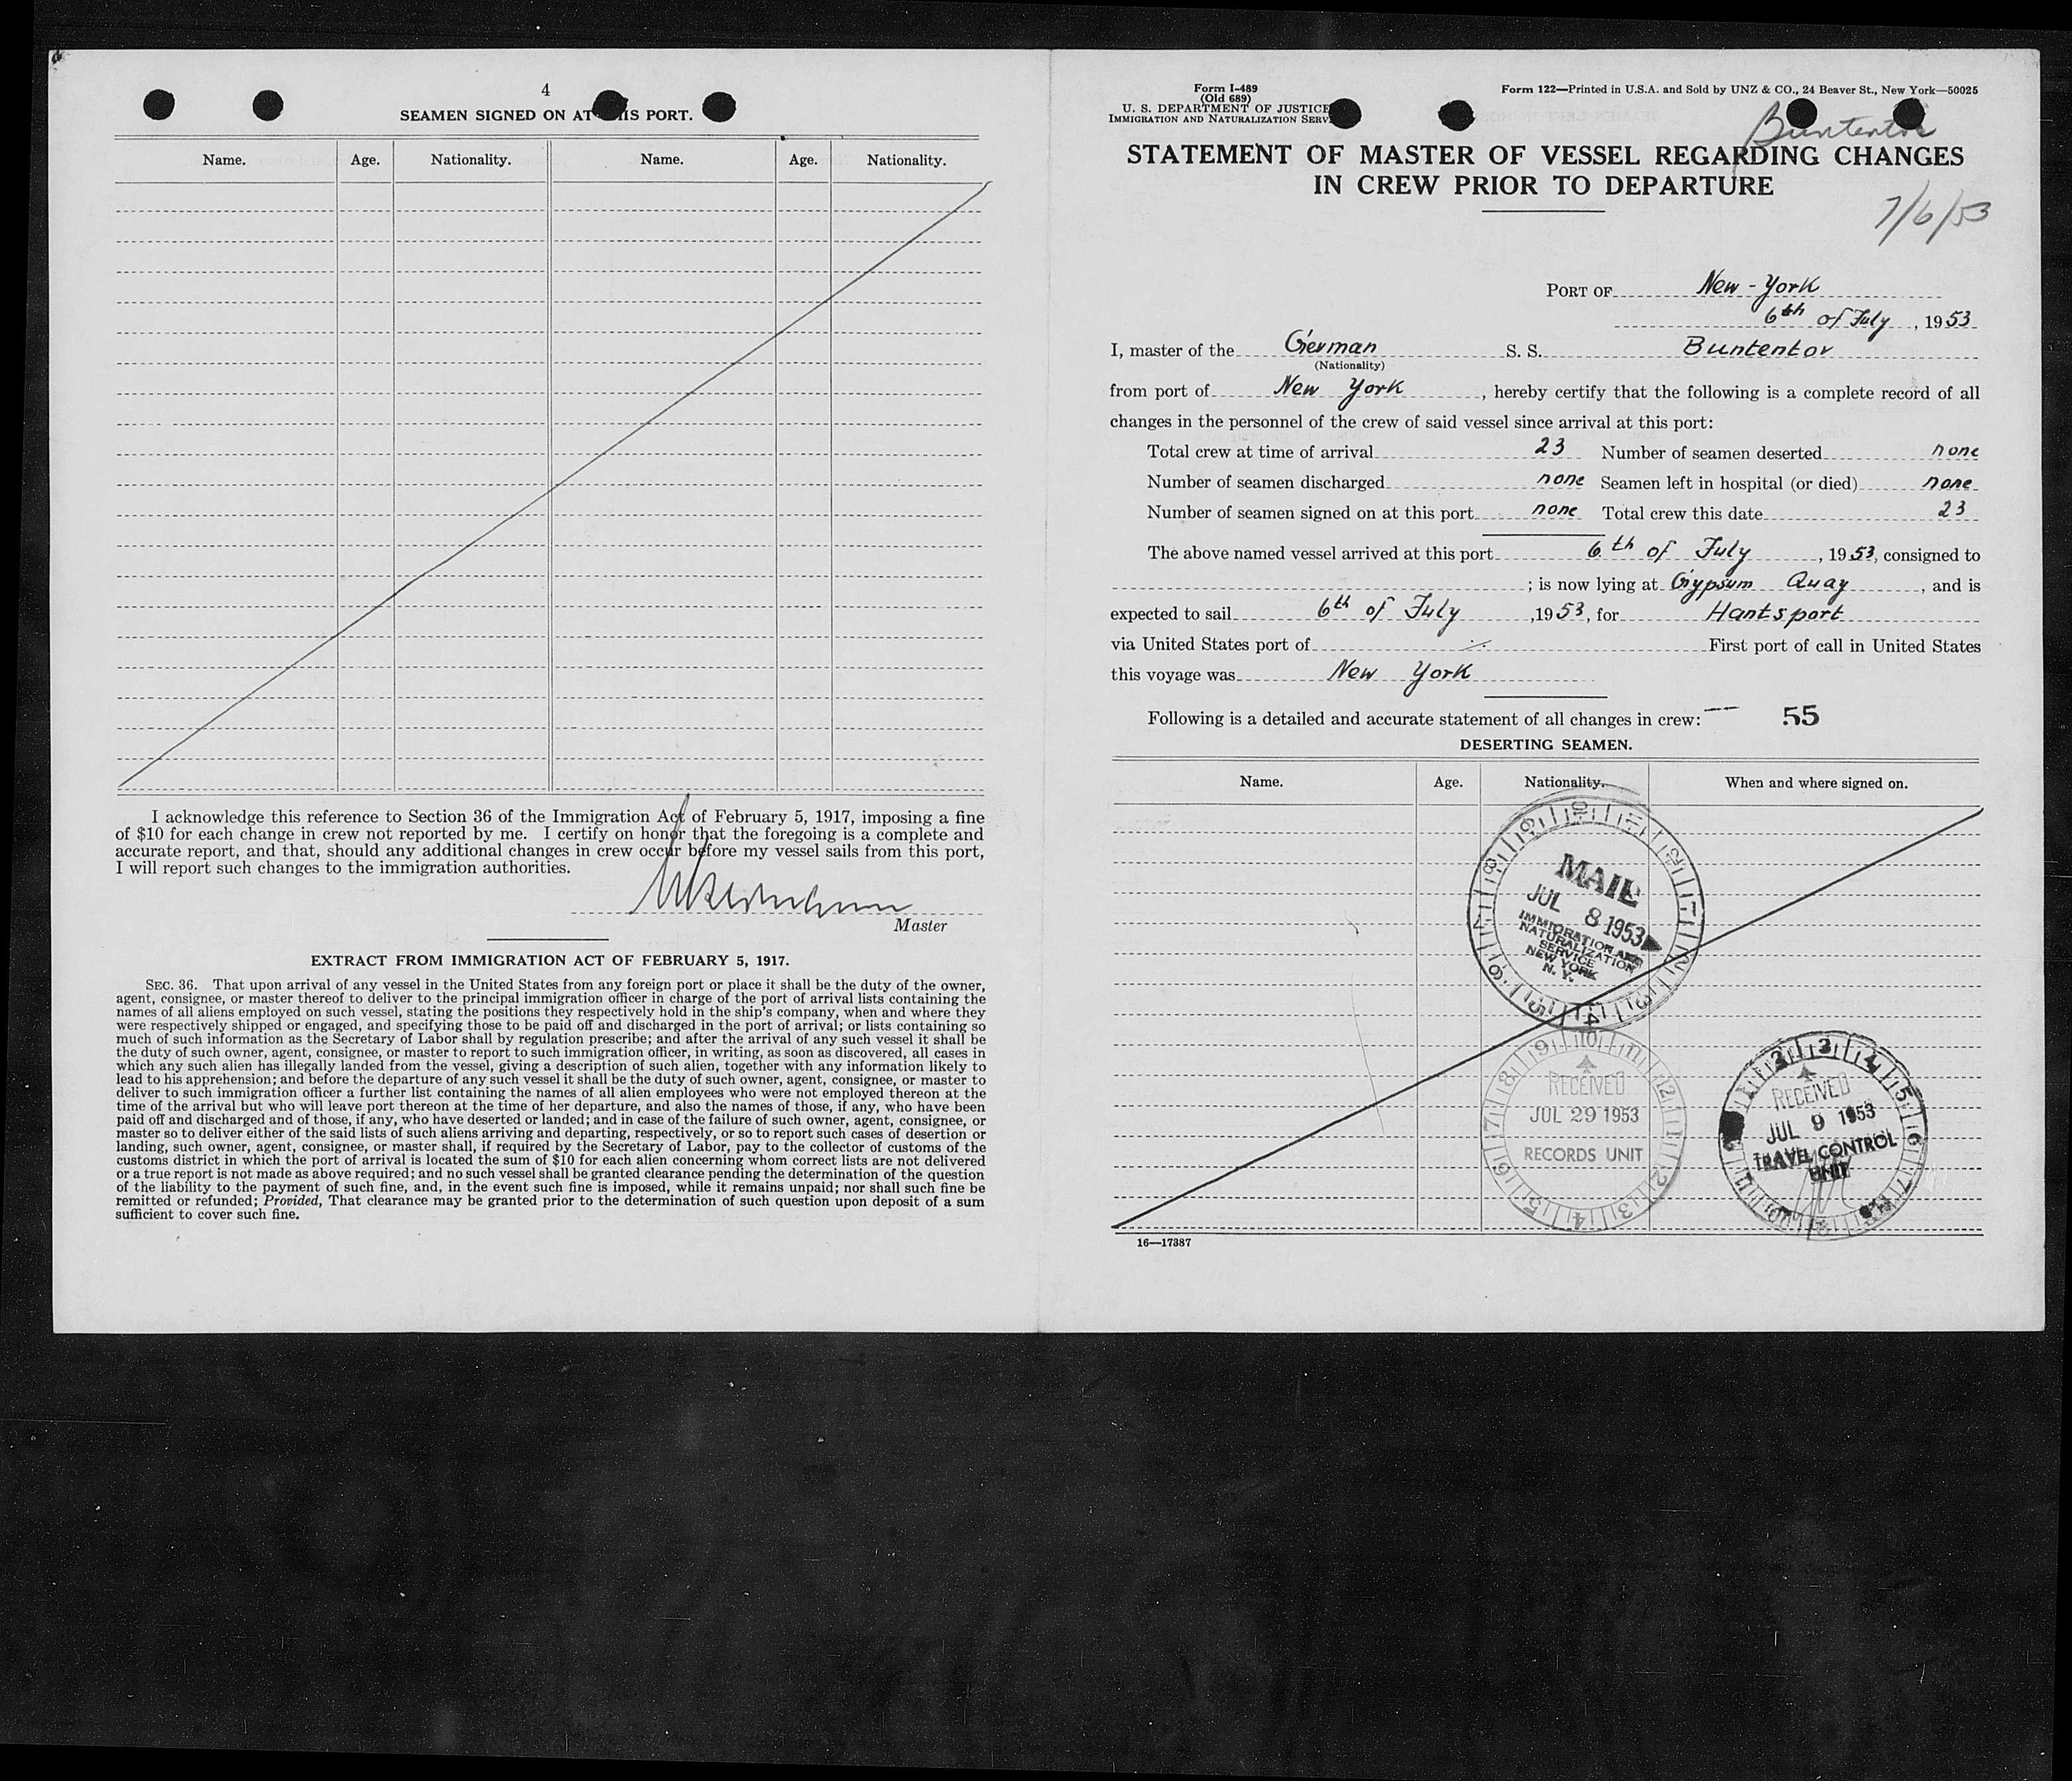 4
SEAMEN SIGNED ON AT THIS PORT.
Name. Age. Nationality. Name. Age. Nationality.
I acknowledge this reference to Section 36 of the Immigration Act of February 5, 1917, imposing a fine
of $10 for each change in crew not reported by me. I certify on honor that the foregoing is a complete and
accurate report, and that, should any additional changes in crew occur before my vessel sails from this port,
I will report such changes to the immigration authorities.
Master
EXTRACT FROM IMMIGRATION ACT OF FEBRUARY 5, 1917.
SEC. 36. That upon arrival of any vessel in the United States from any foreign port or place it shall be the duty of the owner,
agent, consignee, or master thereof to deliver to the principal immigration officer in charge of the port of arrival lists containing the
names of all aliens employed on such vessel, stating the positions they respectively hold in the ship's company, when and where they
were respectively shipped or engaged, and specifying those to be paid off and discharged in the port of arrival; or lists containing so
much of such information as the Secretary of Labor shall by regulation prescribe; and after the arrival of any such vessel it shall be
the duty of such owner, agent, consignee, or master to report to such immigration officer, in writing, as soon as discovered, all cases in
which any such alien has illegally landed from the vessel, giving a description of such alien, together with any information likely to
lead to his apprehension; and before the departure of any such vessel it shall be the duty of such owner, agent, consignee, or master to
deliver to such immigration officer a further list containing the names of all alien employees who were not employed thereon at the
time of the arrival but who will leave port thereon at the time of her departure, and also the names of those, if any, who have been
paid off and discharged and of those, if any, who have deserted or landed; and in case of the failure of such owner, agent, consignee, or
master so to deliver either of the said lists of such aliens arriving and departing, respectively, or so to report such cases of desertion or
landing, such owner, agent, consignee, or master shall, if required by the Secretary of Labor, pay to the collector of customs of the
customs district in which the port of arrival is located the sum of $10 for each alien concerning whom correct lists are not delivered
or a true report is not made as above required; and no such vessel shall be granted clearance pending the determination of the question
of the liability to the payment of such fine, and, in the event such fine is imposed, while it remains unpaid; nor shall such fine be
remitted or refunded; Provided, That clearance may be granted prior to the determination of such question upon deposit of a sum
sufficient to cover such fine.
Form I-489
(Old 689)
U. S. DEPARTMENT OF JUSTICE
IMMIGRATION AND NATURALIZATION SERV
Form 122—Printed in U.S.A. and Sold by UNZ & CO., 24 Beaver St., New York—50025
Buntentor
STATEMENT OF MASTER OF VESSEL REGARDING CHANGES
IN CREW PRIOR TO DEPARTURE
7/6/53
PORT OF New-York
6th of July, 1953
I, master of the German S. S. Buntentor
(Nationality)
from port of New York, hereby certify that the following is a complete record of all
changes in the personnel of the crew of said vessel since arrival at this port:
Total crew at time of arrival 23 Number of seamen deserted none
Number of seamen discharged none Seamen left in hospital (or died) none
Number of seamen signed on at this port none Total crew this date 23
The above named vessel arrived at this port 6th of July, 1953, consigned to
; is now lying at Gypsum Quay, and is
expected to sail 6th of July, 1953, for Hantsport
via United States port of First port of call in United States
this voyage was New York
Following is a detailed and accurate statement of all changes in crew: 55
DESERTING SEAMEN.
Name. Age. Nationality. When and where signed on.
MAIL
JUL 8 1953
IMMIGRATION AND
NATURALIZATION
SERVICE
NEW YORK
N. Y.
RECEIVED
JUL 29 1953
RECORDS UNIT
RECEIVED
JUL 9 1953
TRAVEL CONTROL
UNIT
16—17387